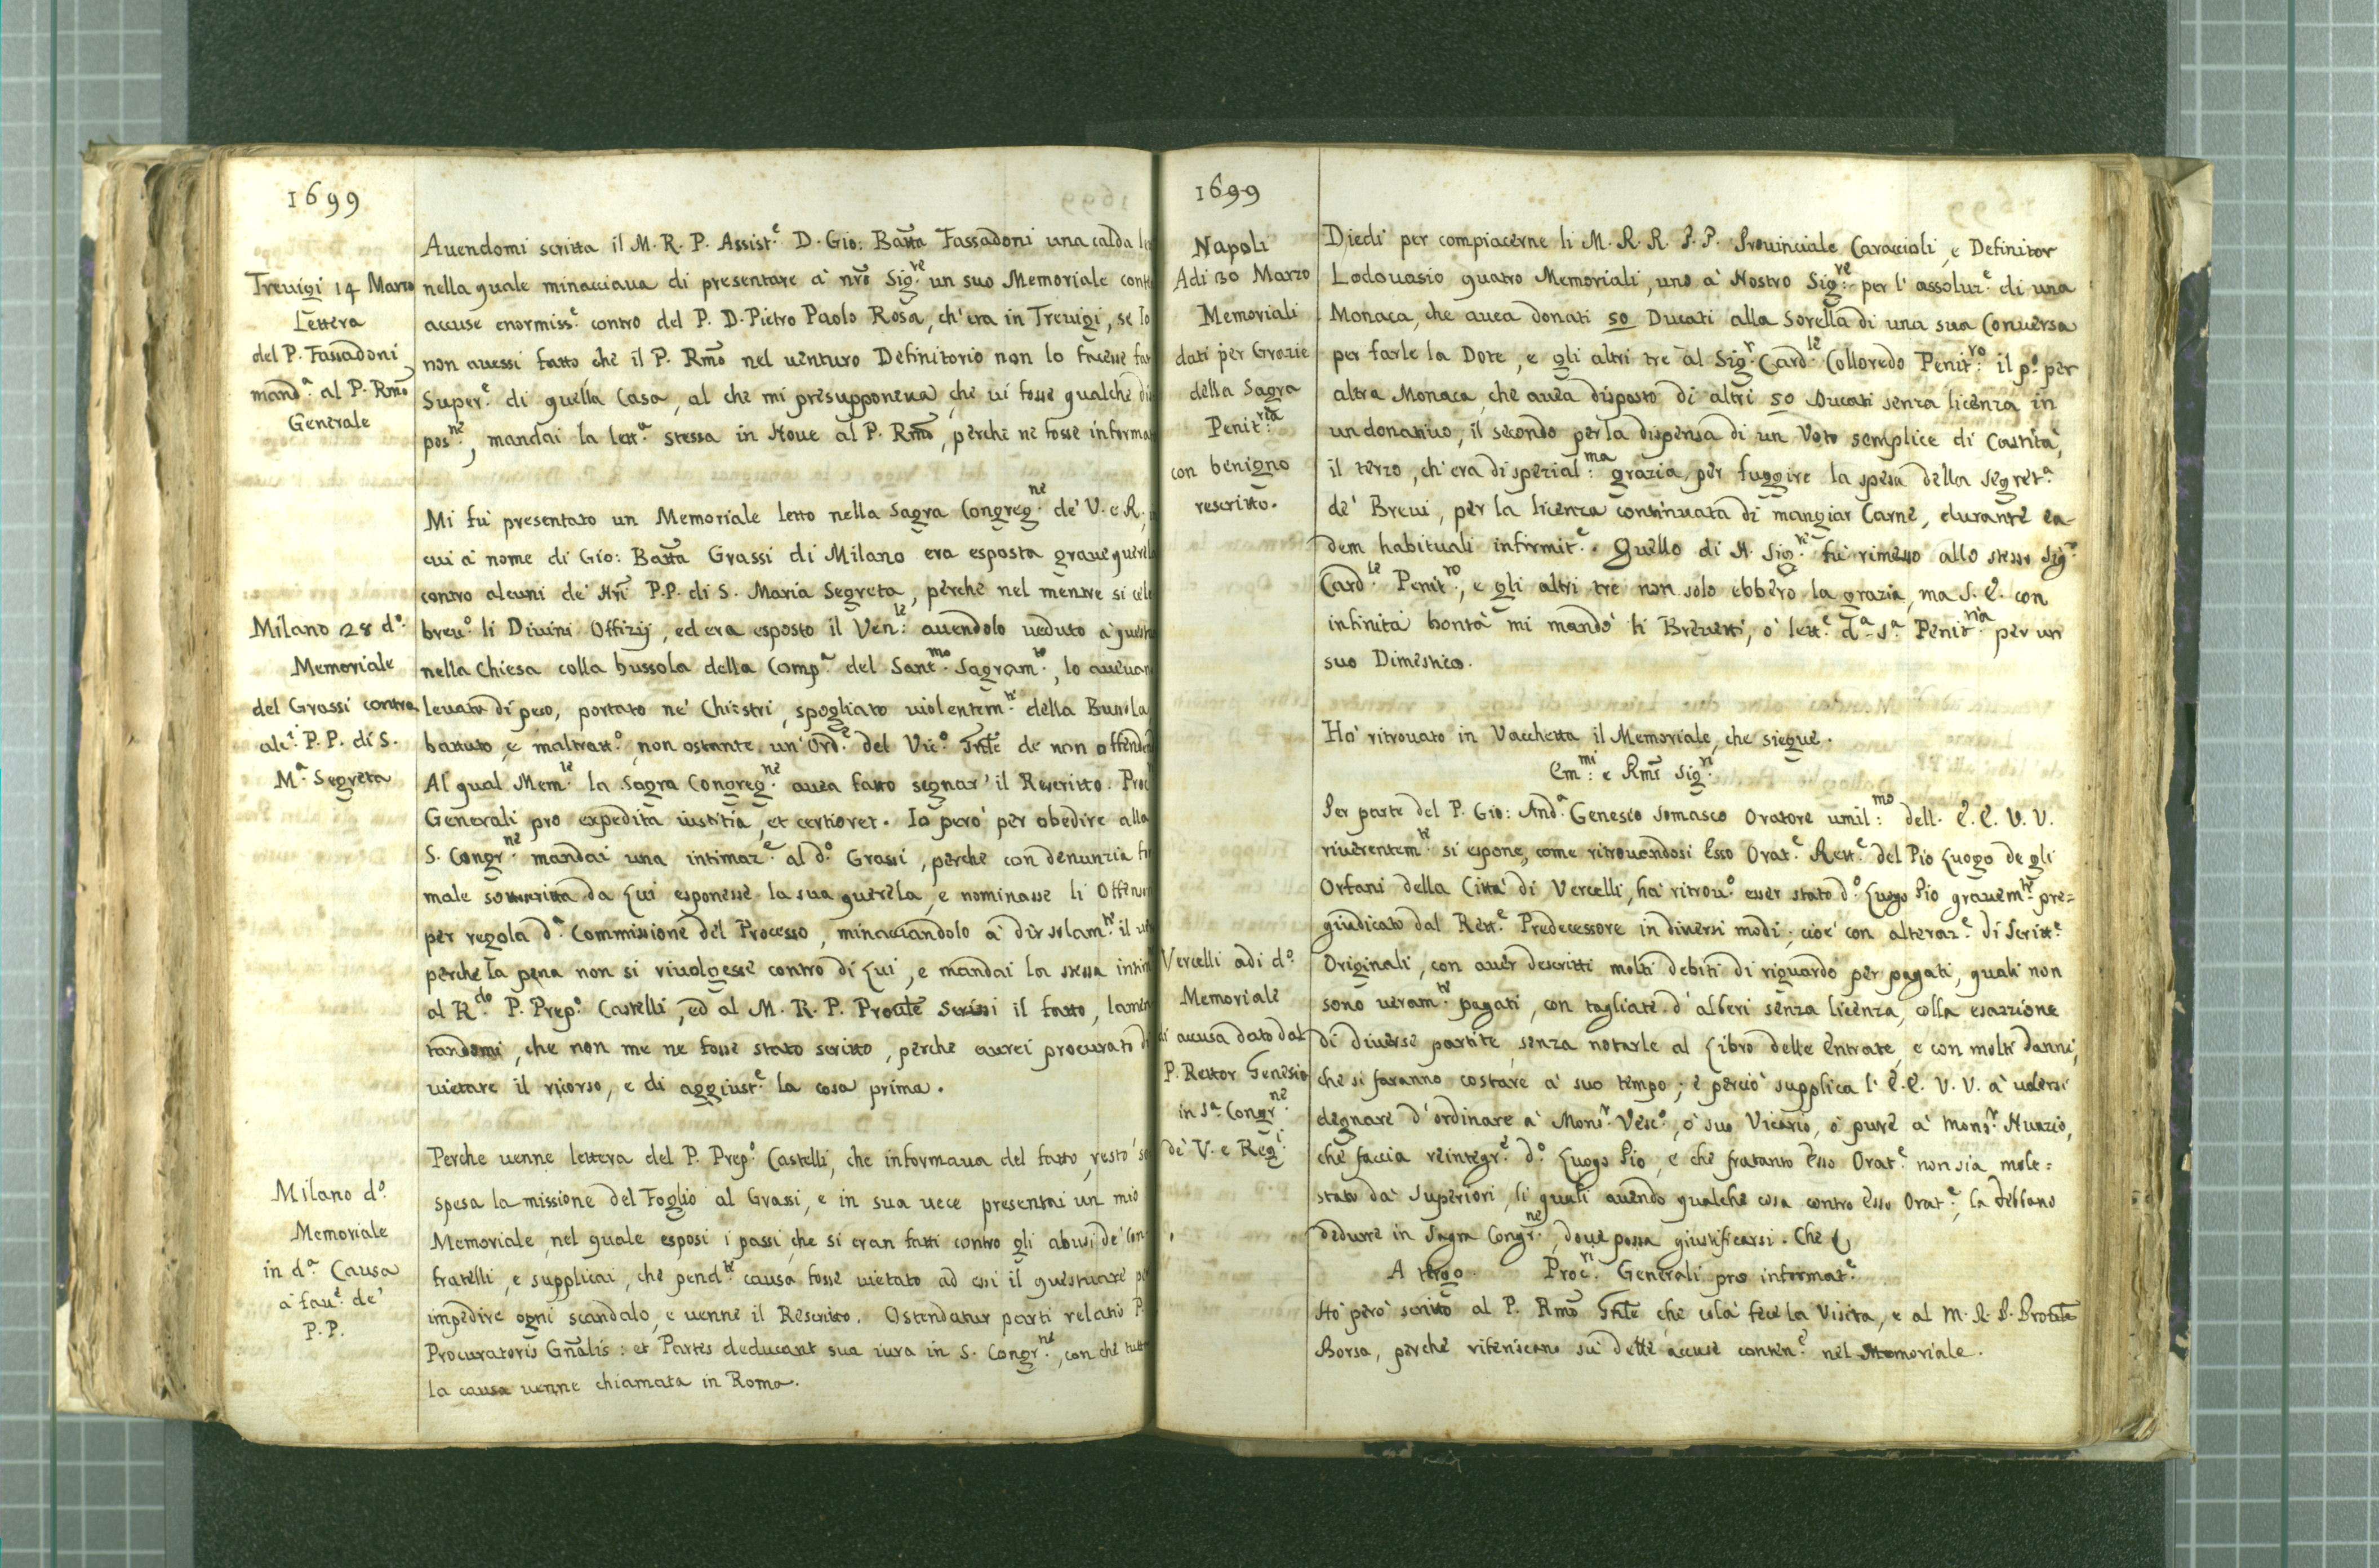 1699
Auendomi scritta il M. R. P. Assist.e D. Gio: Batta Fassadoni una calda
Treuigi 14 Marzo
Lettera
del P. Fassadoni
mand.a al P. Rmo
Generale
nella quale minacciaua di presentare à nro Sig.re un suo Memoriale
accuse enormiss.e contro del P. D. Pietro Paolo Rosa, ch'era in Treuigi, se Io
non auessi fatto che il P. Rmo nel uenturo Definitorio non lo facesse
Super.e di quella Casa, al che mi presupponeua, che ui fosse qualche
pos.ne, mandai la lett.a stessa in Houe al P. Rmo, perche ne fosse
Mi fù presentato un Memoriale letto nella Sagra Congreg.ne de' V. e R.
cui à nome di Gio: Batta Grassi di Milano era esposta graue
contro alcuni de' Nri P.P. di S. Maria Segreta, perche nel mentre si
Milano 28 d.o
Memoriale
del Grassi contra
alc.i P. P. di S.
M.a Segreta
breu.o li Diuini Offizij, ed era esposto il Ven.le auendolo ueduto à
nella Chiesa colla bussola della Comp.a del Sant.mo Sagram.to, lo
leuato di peso, portato ne' Chiostri, spogliato uiolentem.te della Bussola,
battuto, e maltratt.o, non ostante un' Ord.e del Vic.o Gnle de non
Al qual Mem.le la Sagra Congreg.ne auea fatto segnar' il Rescritto. Proc
Generali pro expedita iustitia, et certioret. Io però per obedire alla
S. Congr.ne mandai una intimaz.e al d.o Grassi, perche con denunzia
male sottoscritta da Lui esponesse la sua querela, e nominasse li
per regola d.a Commissione del Processo, minacciandolo à dir solam.te il
perche la pena non si riuolgesse contro di Lui, e mandai la stessa
al R.do P. Prep.o Castelli, ed al M. R. P. Proule Scrissi il fatto,
tandomi, che non me ne fosse stato scritto, perche aurei procurato
uietare il ricorso, e di aggiust.e la cosa prima.
Milano d.o
Memoriale
in d.a Causa
à fau.e de'
P. P.
Perche uenne lettera del P. Prep.o Castelli, che informaua del fatto, restò
spesa la missione del Foglio al Grassi, e in sua uece presentai un mio
Memoriale, nel quale esposi i passi, che si eran fatti contro gli abusi de' Con
fratelli, e supplicai, che pend.te causa fosse uietato ad essi il questuare
impedire ogni scandalo, e uenne il Rescritto. Ostendatur parti relatio
Procuratoris Gnalis: et Partes deducant sua iura in S. Congr.ne, con che
la causa uenne chiamata in Roma.
1699
Napoli
Adi 30 Marzo
Memoriali
dati per Grazie
della Sagra
Penit.ria
con benigno
rescritto.
Diedi per compiacerne li M. R. R. P. P. Prouinciale Caraccioli, e Definitor
Lodouasio quatro Memoriali, uno à Nostro Sig.re per l' assoluz.e di una
Monaca, che auea donati 50 Ducati alla Sorella di una sua Conuersa
per farle la Dote, e gli altri tre al Sig.r Card.le Colloredo Penit.ro il p.o per
altra Monaca, che auea disposto di altri 50 Ducati senza licenza in
un donatiuo, il secondo per la dispensa di un Voto semplice di Castità,
il terzo, ch' era di spezial.ma grazia, per fuggire la spesa della Segret.a
de' Breui, per la licenza continuata di mangiar Carne, durante ea
dem habituali infirmit.e. Quello di N. Sig.re fù rimesso allo stesso Sig.r
Card.le Penit.ro, e gli altri tre non solo ebbero la grazia, ma S. E. con
infinita bontà mi mandò li Breuetti, ò lett.e d.a S.a Penit.ria per un
suo Dimestico.
Hò ritrouato in Vacchetta il Memoriale, che siegue.
Em.mi e Rmi Sig.ri
Vercelli adi d.o
Memoriale
di accusa dato dal
P. Rettor Genesio
in S.a Congr.ne
de' V. e Reg.i
Per parte del P. Gio: And.a Genesio Somasco Oratore umil.mo dell. E. E. V. V.
riuerentem.te si espone, come ritrouandosi Esso Orat.e Rett.e del Pio Luogo de gli
Orfani della Città di Vercelli, hà ritrou.o esser stato d.o Luogo Pio grauem.te pre=
giudicato dal Rett.e Predecessore in diuersi modi; cioe' con alteraz.e di Scritt.e
Originali, con auer descritti molti debiti di riguardo per pagati, quali non
sono ueram.te pagati, con tagliate d' alberi senza licenza, colla esazzione
di diuerse partite, senza notarle al Libro delle Entrate, e con molti danni,
che si faranno costare à suo tempo; e perciò supplica l' E. E. V. V. à uolersi
degnare d' ordinare à Mons.r Vesc.o, ò suo Vicario, ò pure à Mons.r Nunzio,
che faccia reintegr.e d.o Luogo Pio, e che fratanto Esso Orat.e non sia mole=
stato da' Superiori, li quali auendo qualche cosa contro Esso Orat.e, la debbano
dedurre in Sagra Congr.ne, doue possa giustificarsi. Che
A tergo. Proc.ri Generali pro informat.e
Hò però scritto al P. Rmo Gnle che colà fece la Visita, e al M. R. P. Proule
Borsa, perche riferiscano sù dette accuse conten.e nel Memoriale.